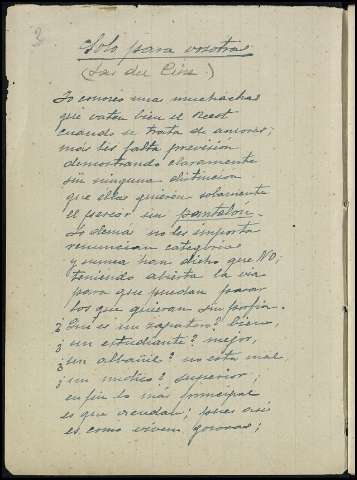 Solo para vosotras
(Las del Cine.)
Yo conozco unas muchachas
que vaten bien el
cuando se trata de amores;
mas les falta previsión
demostrando claramente
sin ninguna distinción
que ellas quieren solamente
el pescar un pantalón.
Lo demas no les importa
renuncian
y nunca han dicho que NO;
teniendo abierta la via
para que puedan pasar
los que quieran sin porfia.
¿Qué es un zapatero? bien,
¿un estudiante? mejor,
¿un albañil? no está mal,
¿un médico? superior;
en fin lo más principal
es que acudan; pues así
es como viven gozosas;